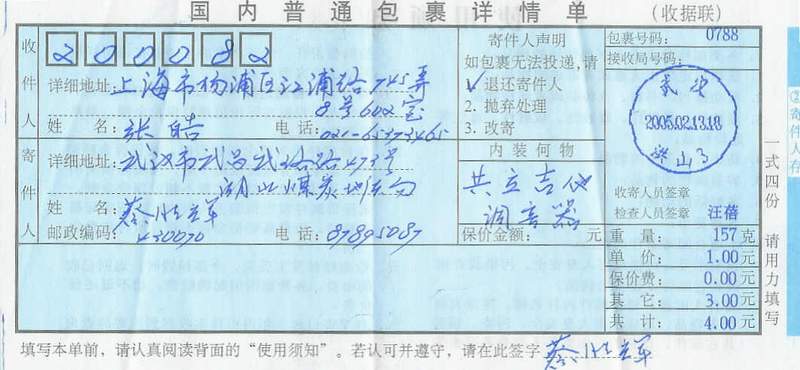 国内普通包裹详情单 (收据联)
收件人 200082
详细地址: 上海市杨浦区江浦路745弄
8号602室
姓名: 张皓 电话: 021-65373465
寄件人 详细地址: 武汉市武昌武珞路473号
湖北煤炭地质局
姓名: 蔡
邮政编码: 430070 电话: 87895087
寄件人声明
如包裹无法投递,请
✓退还寄件人
2. 抛弃处理
3. 改寄
内装何物
共立吉他
调音器
保价金额: 元
包裹号码: 0788
接收局号码:
武汉
2005.02.13.18
洪山
收寄人员签章
检查人员签章 汪蓓
重量: 157克
单价: 1.00元
保价费: 0.00元
其它: 3.00元
共计: 4.00元
填写本单前,请认真阅读背面的“使用须知”。若认可并遵守,请在此签字 蔡
②寄件人存
一式四份 请用力填写